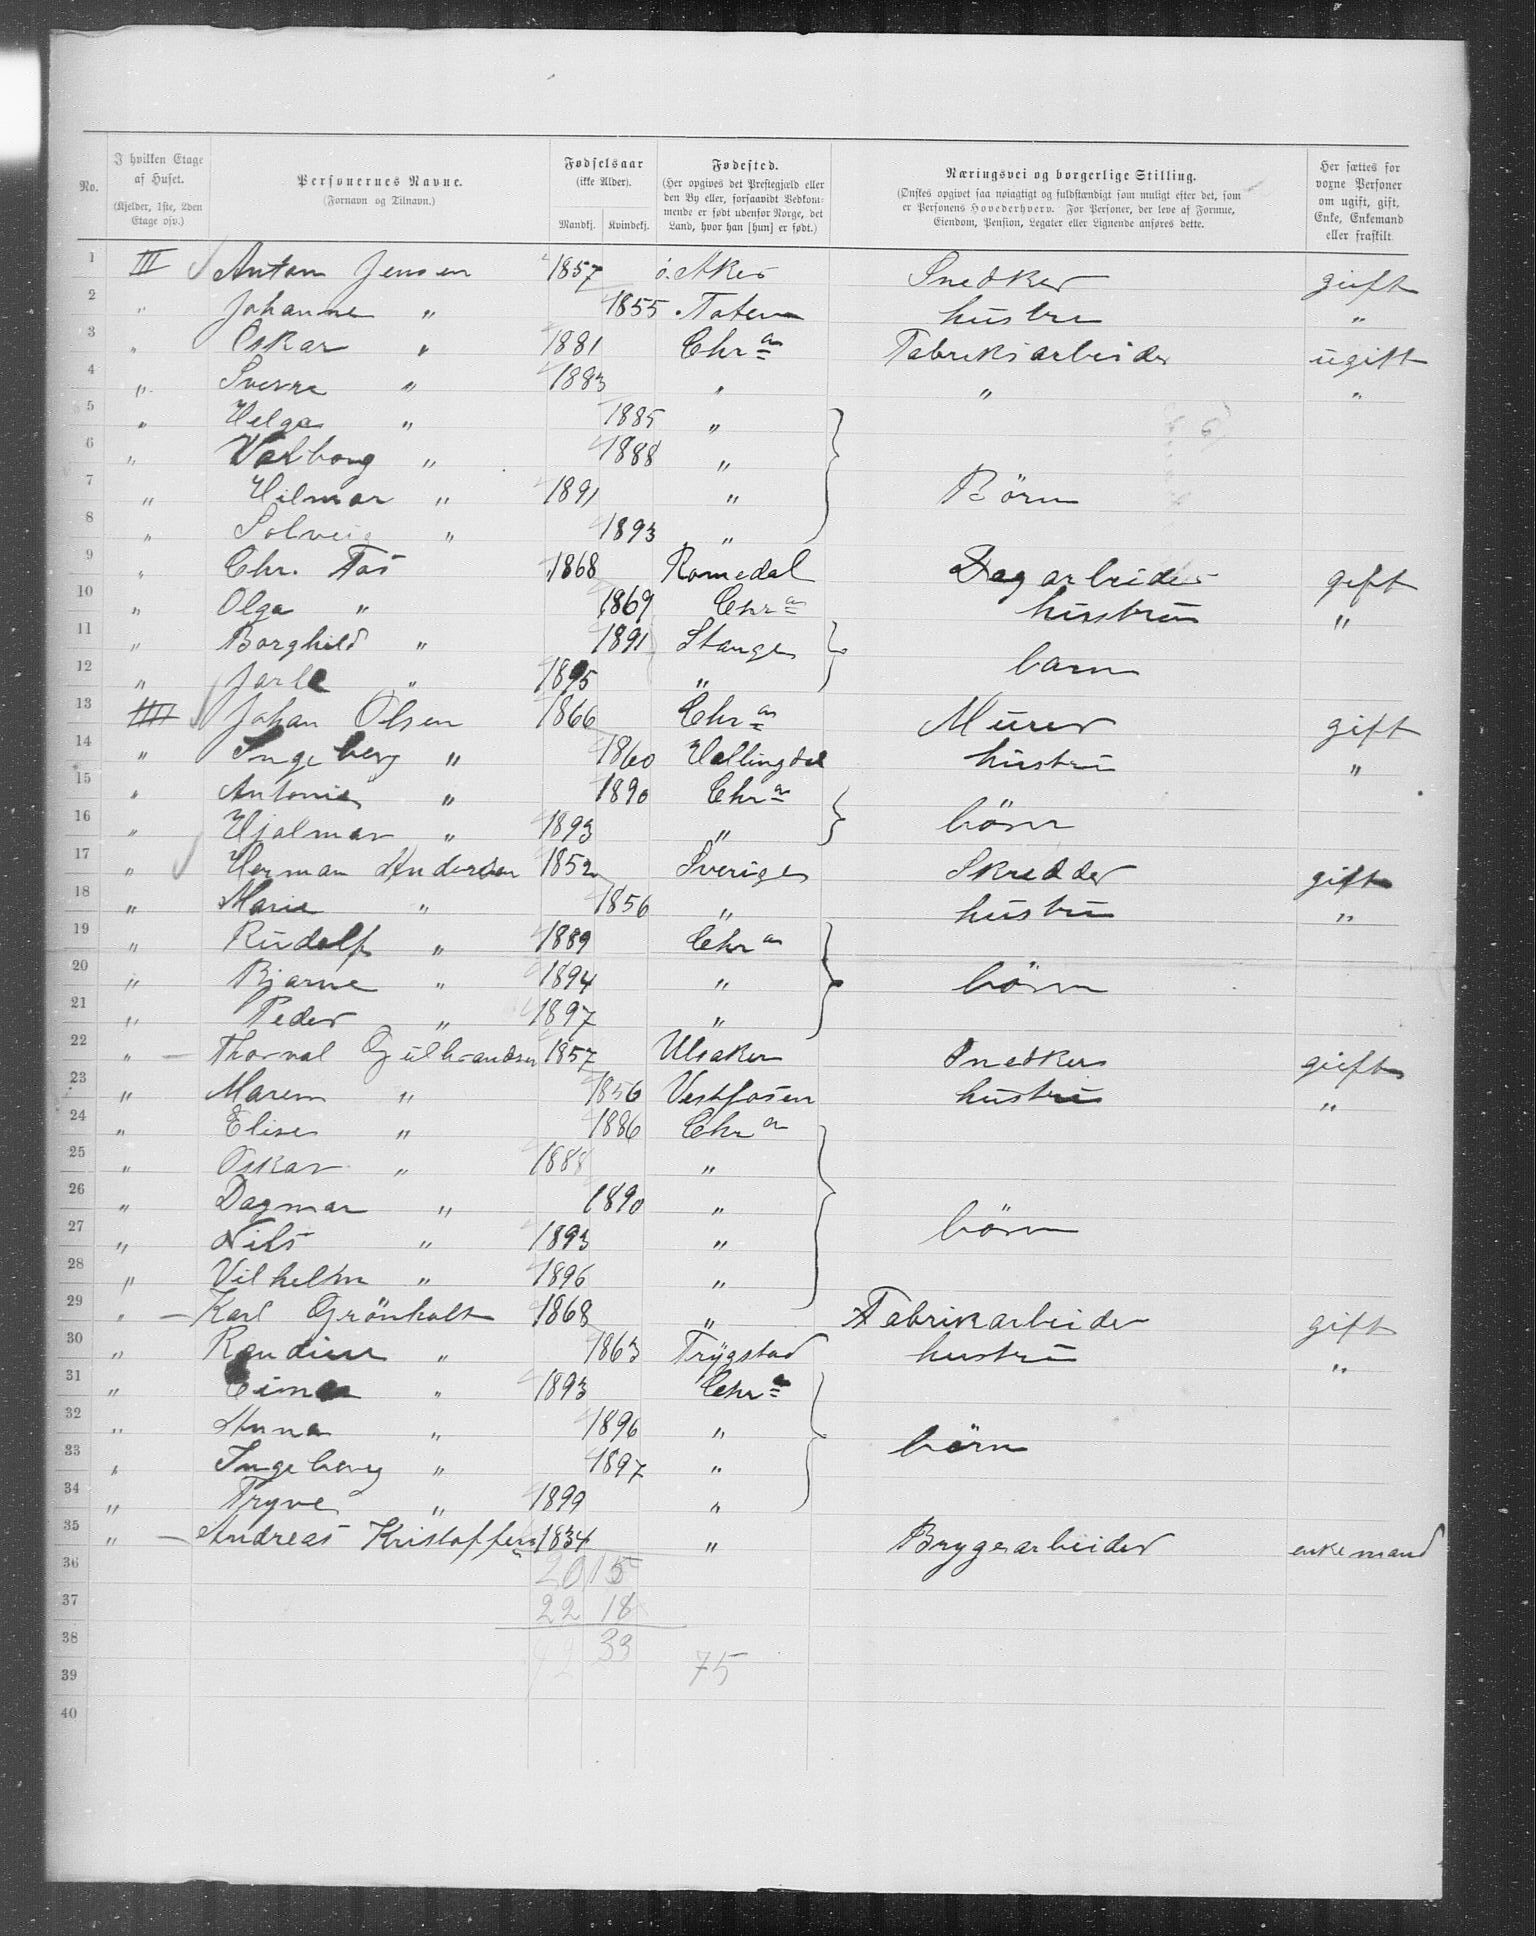 No. | I hvilken Etage af Huset. (Kjelder, 1ste, 2den Etage osv.) | Personernes Navne. (Fornavn og Tilnavn.) | Fødselsaar (ikke Alder). Mandkj. Kvindekj. | Fødested. (Her opgives det Prestegjæld eller den By eller, forsaavidt Vedkommende er født udenfor Norge, det Land, hvor han [hun] er født.) | Næringsvei og borgerlige Stilling. (Ønskes opgivet saa nøiagtigt og fuldstændigt som muligt efter det, som er Personens Hovederhverv. For Personer, der leve af Formue, Eiendom, Pension, Legater eller Lignende anføres dette.) | Her sættes for voxne Personer om ugift, gift, Enke, Enkemand eller fraskilt.
1 III Anton Jensen 1857 ö. Aker Snedker gift
2 " Johanne " 1855 Toten hustru "
3 " Oskar " 1881 Chr a Fabriksarbeider ugift
4 " Sverre " 1883 " " "
5 " Helga " 1885 "
6 " Valborg " 1888 "
7 " Hilmar " 1891 " Börn
8 " Solveig " 1893 "
9 " Chr. Fos 1868 Romedal Dagarbeider gift
10 " Olga " 1869 Chr a hustru "
11 " Borghild " 1891 Stange
12 " Jarle " 1895 " barn
13 IIII Johan Olsen 1866 Chr a Murer gift
14 " Ingeborg " 1860 Hallingdal hustru "
15 " Antonie " 1890 Chr a
16 " Hjalmar " 1893 " börn
17 " Herman Andersen 1852 Sverige Skredder gift
18 " Marie " 1856 " hustru "
19 " Rudolf " 1889 Chr a
20 " Bjarne " 1894 " börn
21 " Peder " 1897 "
22 " – Thorval Gulbrandsen 1857 Ulsaker Snedker gift
23 " Maren " 1856 Vestfosen hustru "
24 " Elise " 1886 Chr a
25 " Oskar " 1888 "
26 " Dagmar " 1890 "
27 " Nils " 1893 " börn
28 " Vilhelm " 1896 "
29 " – Karl Grönholt 1868 " Fabrikarbeider gift
30 " Randine " 1863 Trygstad hustru "
31 " Einar " 1893 Chr a
32 " Anna " 1896 "
33 " Ingeborg " 1897 " börn
34 " Tryve " 1899 "
35 " – Andreas Kristoffers 1834 " Brygearbeider enkemand
36 20 15
37 22 18
38 42 33
39 75
40